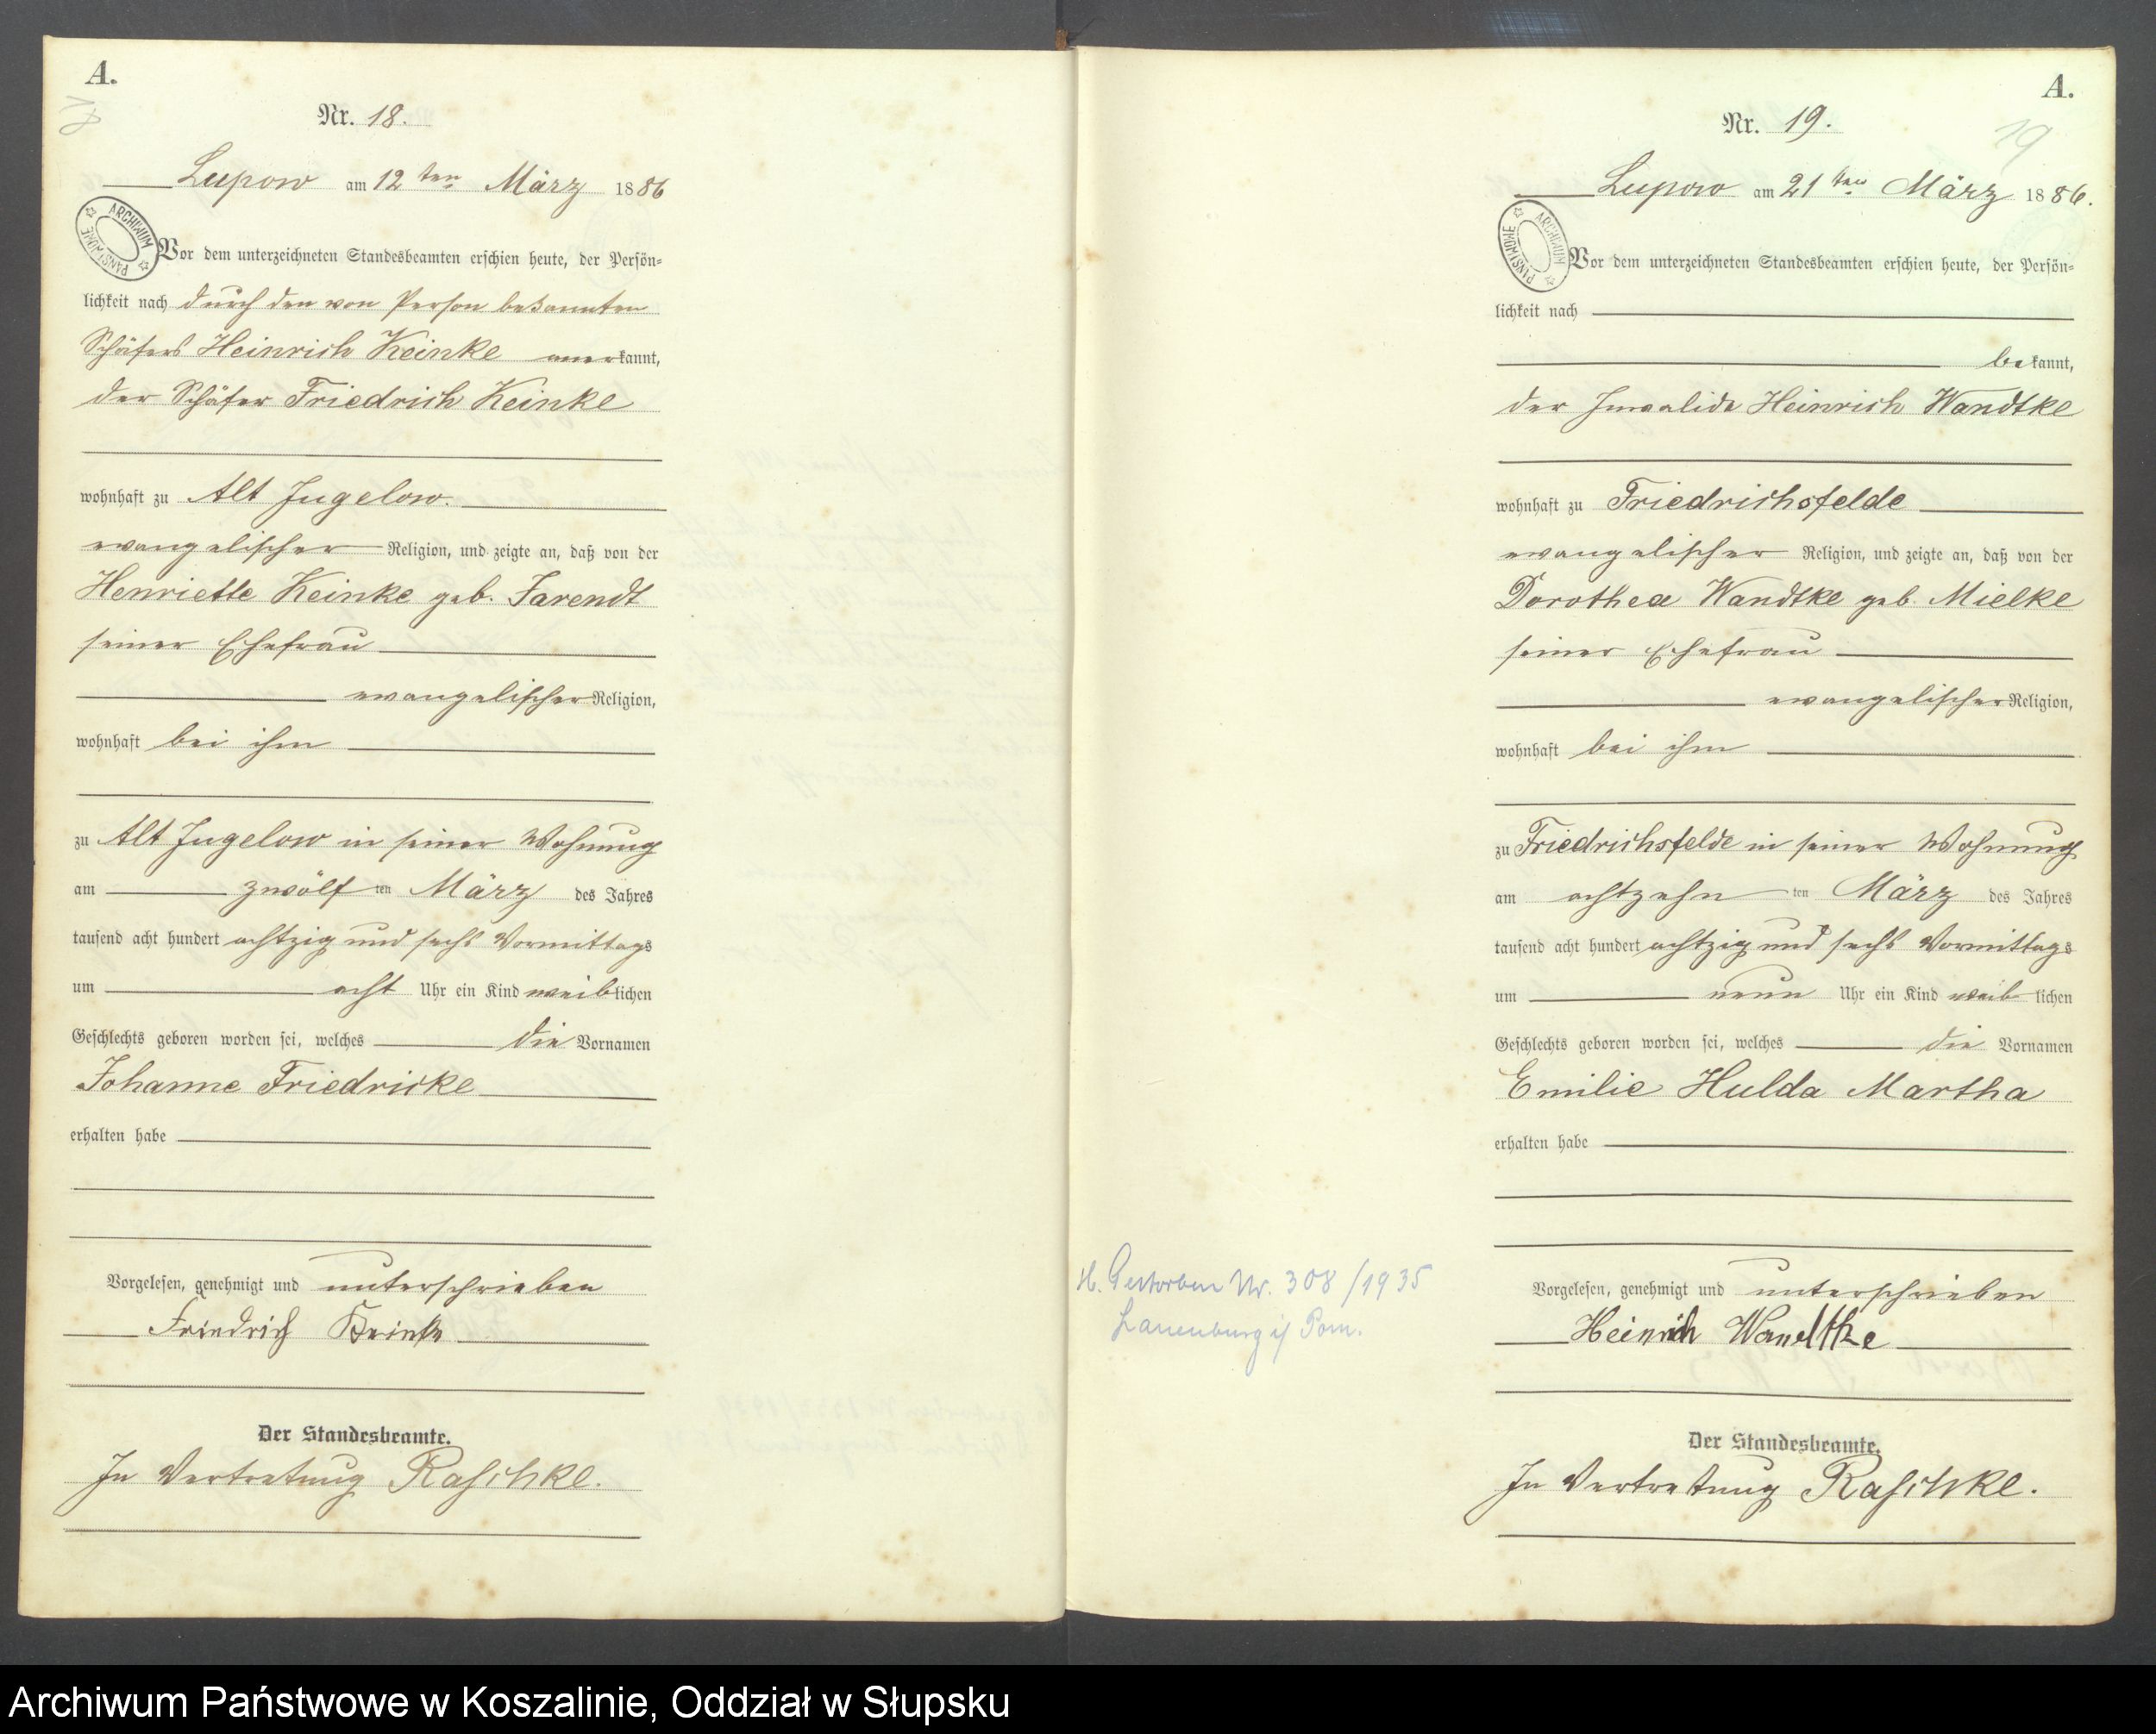 A.
Nr. 18.
Lupow am 12ten März 1886
ARCHIWUM PAŃSTWOWE
Vor dem unterzeichneten Standesbeamten erschien heute, der Persön-
lichkeit nach durch den von Person bekannten
Schäfers Heinrich Keinke anerkannt,
der Schäfer Friedrich Keinke
wohnhaft zu Alt Jugelow.
evangelischer Religion, und zeigte an, daß von der
Henriette Keinke geb. Farendt
seiner Ehefrau
evangelischer Religion,
wohnhaft bei ihm
zu Alt Jugelow in seiner Wohnung
am zwölften März des Jahres
tausend acht hundert achtzig und sechs Vormittags
um acht Uhr ein Kind weiblichen
Geschlechts geboren worden sei, welches die Vornamen
Johanne Friedricke
erhalten habe
Vorgelesen, genehmigt und unterschrieben
Friedrich Keinke
Der Standesbeamte.
In Vertretung Raschke.
A.
Nr. 19.
19
Lupow am 21ten März 1886.
ARCHIWUM PAŃSTWOWE
Vor dem unterzeichneten Standesbeamten erschien heute, der Persön-
lichkeit nach
bekannt,
der Invalide Heinrich Wandtke
wohnhaft zu Friedrichsfelde
evangelischer Religion, und zeigte an, daß von der
Dorothea Wandtke geb. Mielke
seiner Ehefrau
evangelischer Religion,
wohnhaft bei ihm
zu Friedrichsfelde in seiner Wohnung
am achtzehnten März des Jahres
tausend acht hundert achtzig und sechs Vormittags
um neun Uhr ein Kind weiblichen
Geschlechts geboren worden sei, welches die Vornamen
Emilie Hulda Martha
erhalten habe
H. Gestorben Nr. 308/1935
Lauenburg i/ Pom.
Vorgelesen, genehmigt und unterschrieben
Heinrich Wandtke
Der Standesbeamte.
In Vertretung Raschke.
Archiwum Państwowe w Koszalinie, Oddział w Słupsku